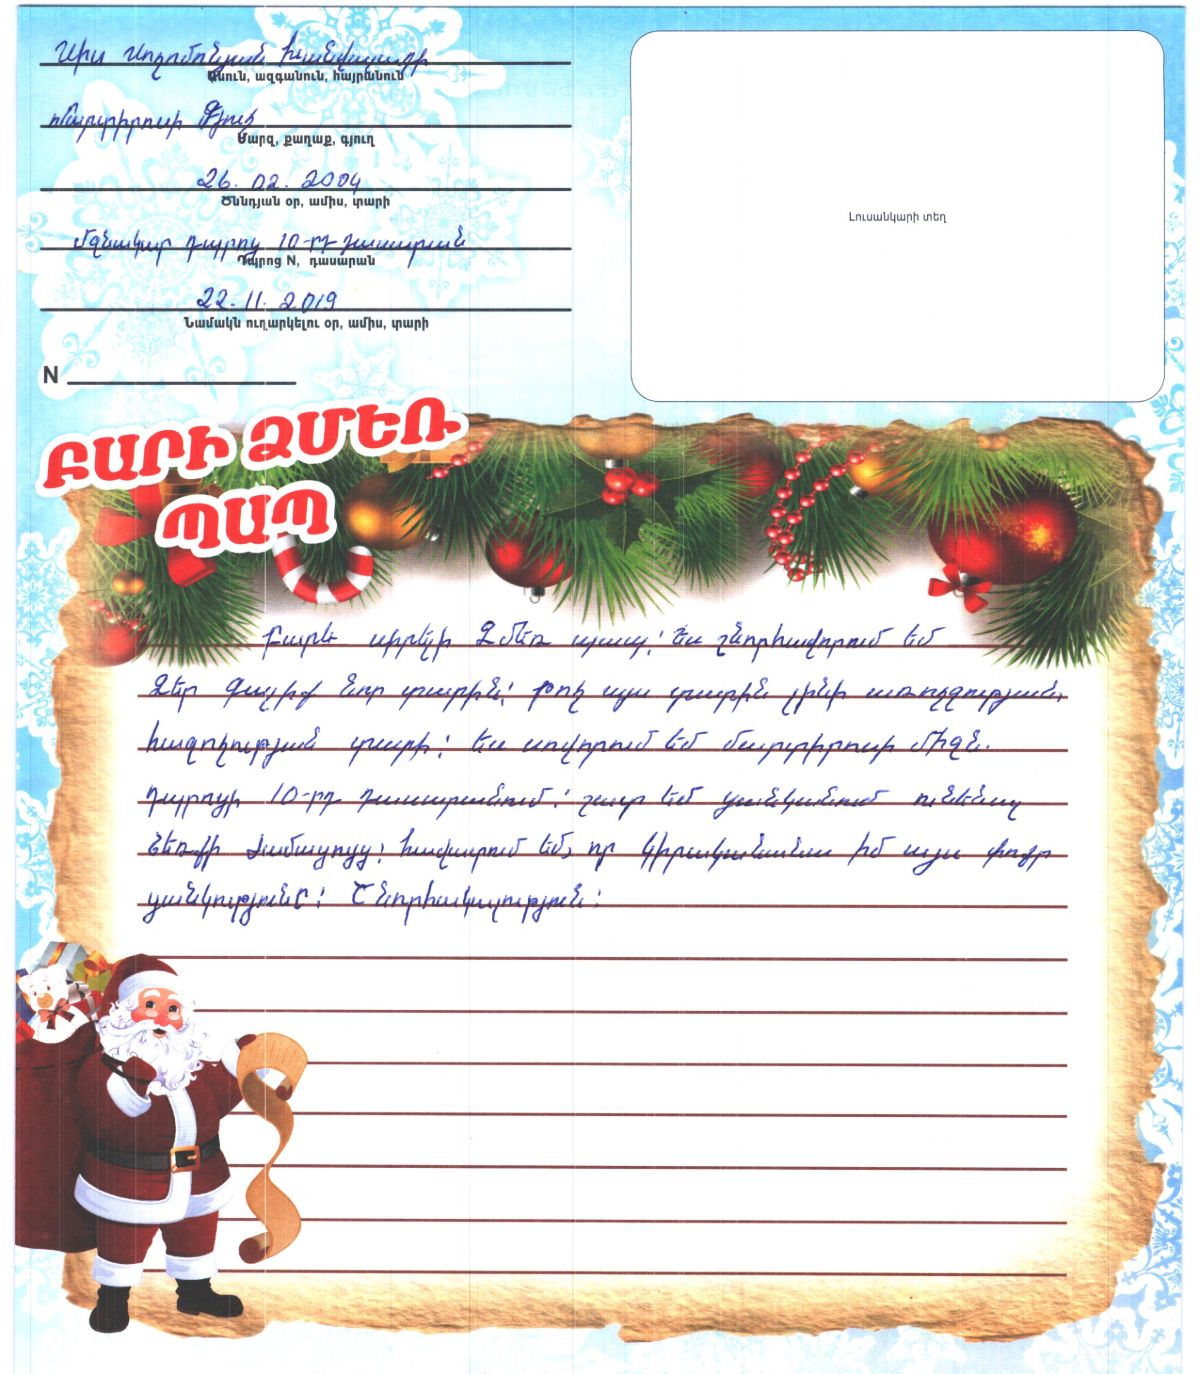 Արս Սողոմոնյան Խանվալադի
Անուն, ազգանուն, հայրանուն
Մարտիրոսի Գյուղ
Մարզ, քաղաք, գյուղ
26. 02. 2004
Ծննդյան օր, ամիս, տարի
Միջնակար դպրոց 10-րդ դասարան
Դպրոց N, դասարան
22. 11. 2019
Նամակն ուղարկելու օր, ամիս, տարի
N
Լուսանկարի տեղ
ԲԱՐԻ ՁՄԵՌ
ՊԱՊ
Բարև սիրելի Ձմեռ պապ։ Ես շնորհավորում եմ
Ձեր գալիք նոր տարին։ Թող այս տարին լինի առողջության,
հաջողության տարի։ Ես սովորում եմ Մարտիրոսի միջն.
դպրոցի 10-րդ դասարանում։ Շատ եմ ցանկանում ունենալ
ձեռքի ժամացույց։ Հավատում եմ, որ կիրականանա իմ այս փոքր
ցանկությունը։ Շնորհակալություն։